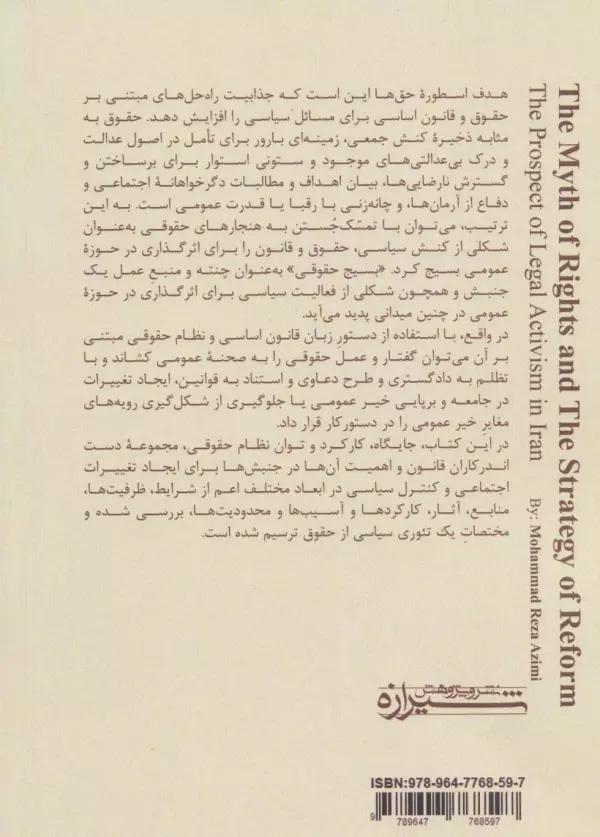 هدف اسطورهٔ حق‌ها این است که جذابیت راه‌حل‌های مبتنی بر
حقوق و قانون اساسی برای مسائل سیاسی را افزایش دهد. حقوق به
مثابه ذخیرهٔ کنش جمعی، زمینه‌ای بارور برای تأمل در اصول عدالت
و درک بی‌عدالتی‌های موجود و ستونی استوار برای برساختن و
گسترش نارضایی‌ها، بیان اهداف و مطالبات دگرخواهانهٔ اجتماعی و
دفاع از آرمان‌ها، و چانه‌زنی با رقبا یا قدرت عمومی است. به این
ترتیب، می‌توان با تمسّک‌جُستن به هنجارهای حقوقی به‌عنوان
شکلی از کنش سیاسی، حقوق و قانون را برای اثرگذاری در حوزهٔ
عمومی بسیج کرد. «بسیج حقوقی» به‌عنوان چنته و منبعِ عمل یک
جنبش و همچون شکلی از فعالیت سیاسی برای اثرگذاری در حوزهٔ
عمومی در چنین میدانی پدید می‌آید.
در واقع، با استفاده از دستورِ زبان قانون اساسی و نظام حقوقی مبتنی
بر آن می‌توان گفتار و عمل حقوقی را به صحنهٔ عمومی کشاند و با
تظلم به دادگستری و طرح دعاوی و استناد به قوانین، ایجاد تغییرات
در جامعه و برپایی خیر عمومی یا جلوگیری از شکل‌گیری رویه‌های
مغایرِ خیر عمومی را در دستورکار قرار داد.
در این کتاب، جایگاه، کارکرد و توان نظام حقوقی، مجموعهٔ دست
اندرکاران قانون و اهمیت آن‌ها در جنبش‌ها برای ایجاد تغییرات
اجتماعی و کنترل سیاسی در ابعاد مختلف اعم از شرایط، ظرفیت‌ها،
منابع، آثار، کارکردها و آسیب‌ها و محدودیت‌ها، بررسی شده و
مختصاتِ یک تئوری سیاسی از حقوق ترسیم شده است.
The Myth of Rights and The Strategy of Reform
The Prospect of Legal Activism in Iran
By: Mohammad Reza Azimi
نشر و پژوهش
شیرازه
ISBN:978-964-7768-59-7
9 789647 768597